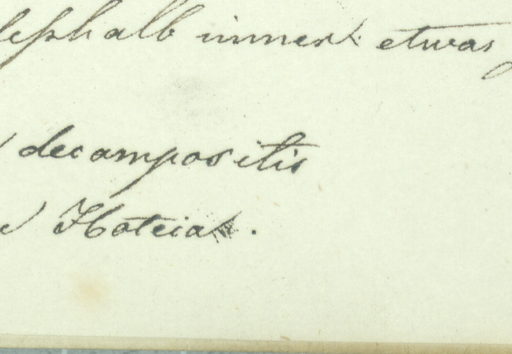 deshalb immer etwas
decompositis
Hoteia.